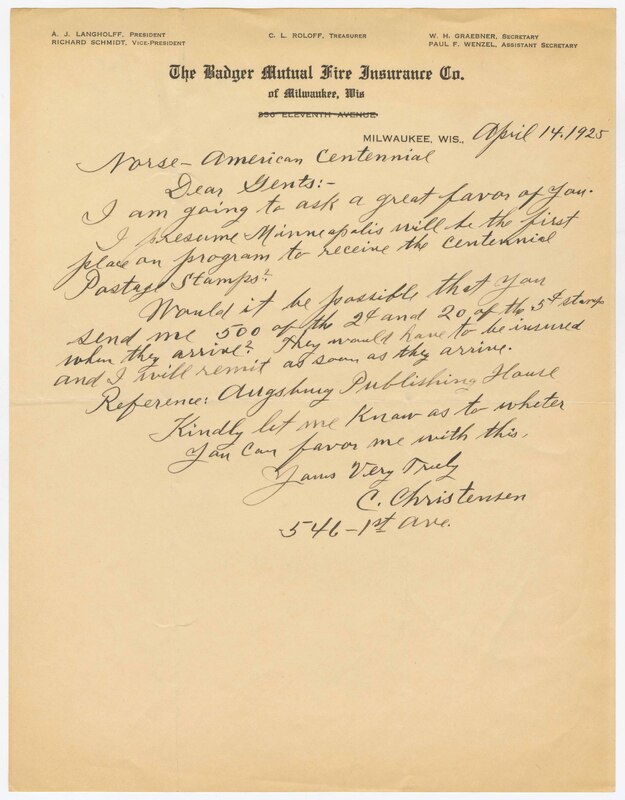 A. J. LANGHOLFF, PRESIDENT
RICHARD SCHMIDT, VICE-PRESIDENT
C. L. ROLOFF, TREASURER
W. H. GRAEBNER, SECRETARY
PAUL F. WENZEL, ASSISTANT SECRETARY
The Badger Mutual Fire Insurance Co.
of Milwaukee, Wis
936 ELEVENTH AVENUE
MILWAUKEE, WIS., April 14. 1925
Norse-American Centennial
Dear Gents:-
I am going to ask a great favor of You.
I presume Minneapolis will be the first
place on program to receive the Centennial
Postage Stamps?
Would it be possible that You
send me 500 of the 2¢ and 20 of the 5¢ stamps
when they arrive? They would have to be insured
and I will remit as soon as they arrive.
Reference: Augsburg Publishing House
Kindly let me Know as to wheter
You Can favor me with this,
Yours Very Truly
C. Christensen
546-1st Ave.